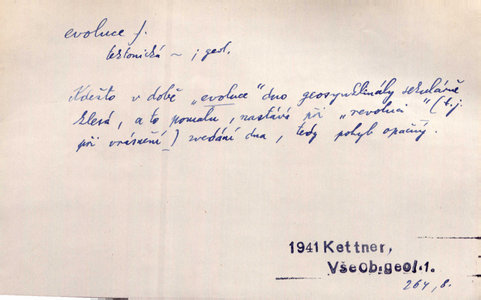 evoluce f.
tektonická ~ ; geol.
Kdežto v době „evoluce" dno geosynklinály sekulárně
klesá, a to pomalu, nastává při „revoluci" (t.j.
při vrásnění) zvedání dna, tedy pohyb opačný.
1941 Kettner,
VšeOb.geol.1.
264, 8.